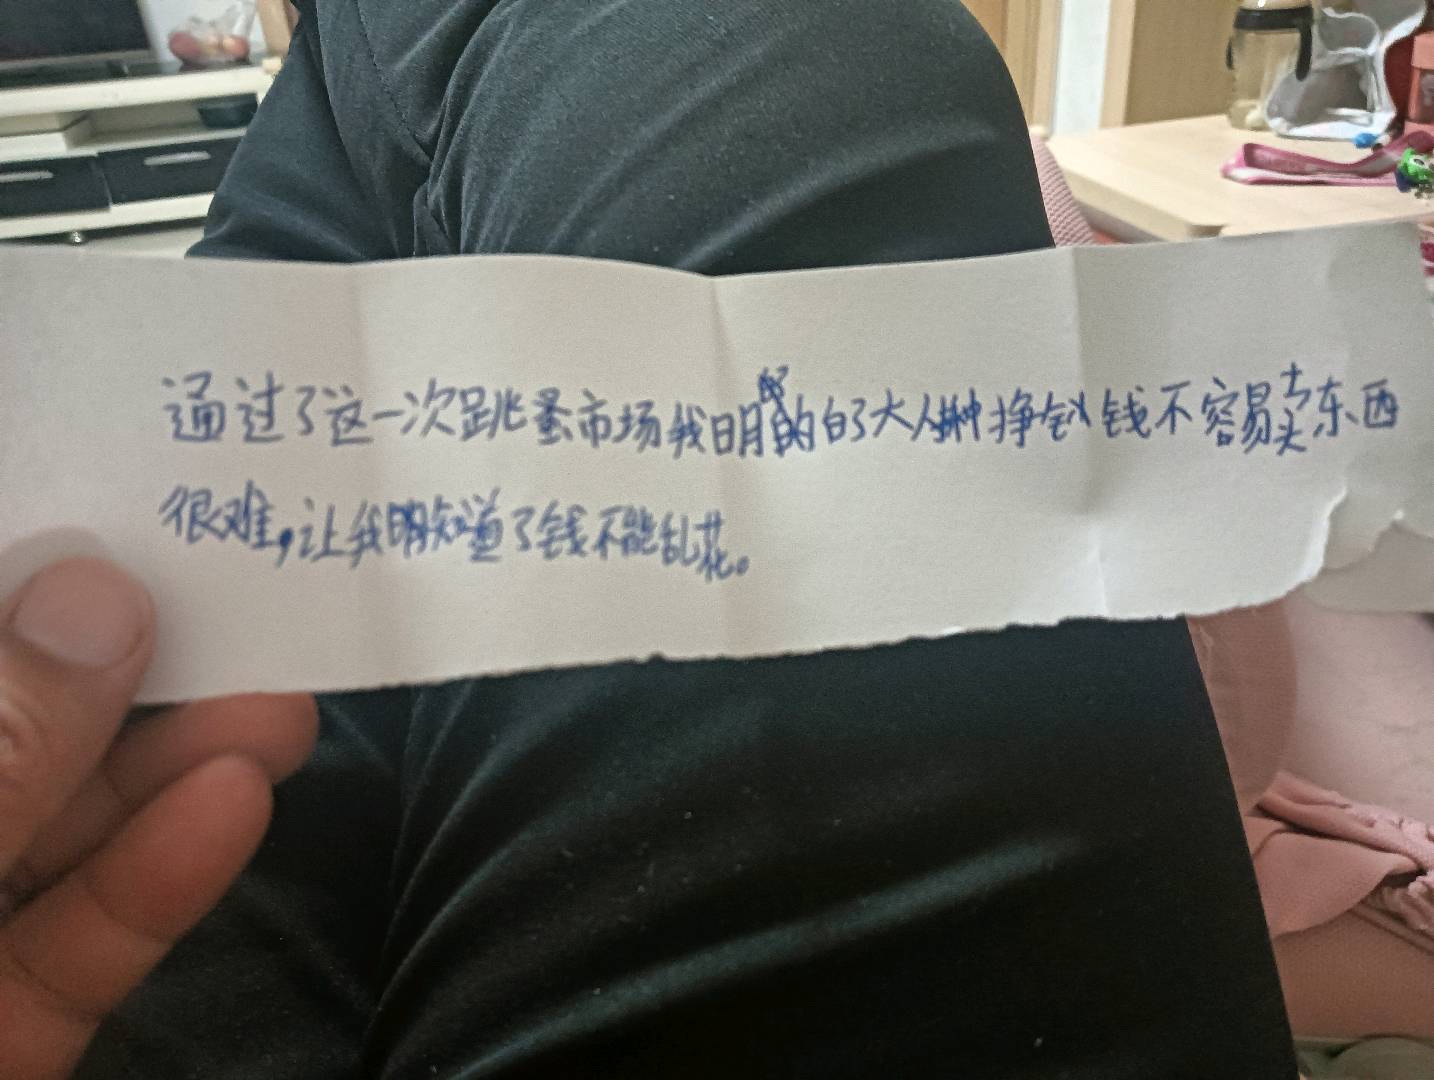 通过了这一次跳蚤市场我明白了大人挣钱不容易卖东西
很难,让我明知道了钱不能乱花。